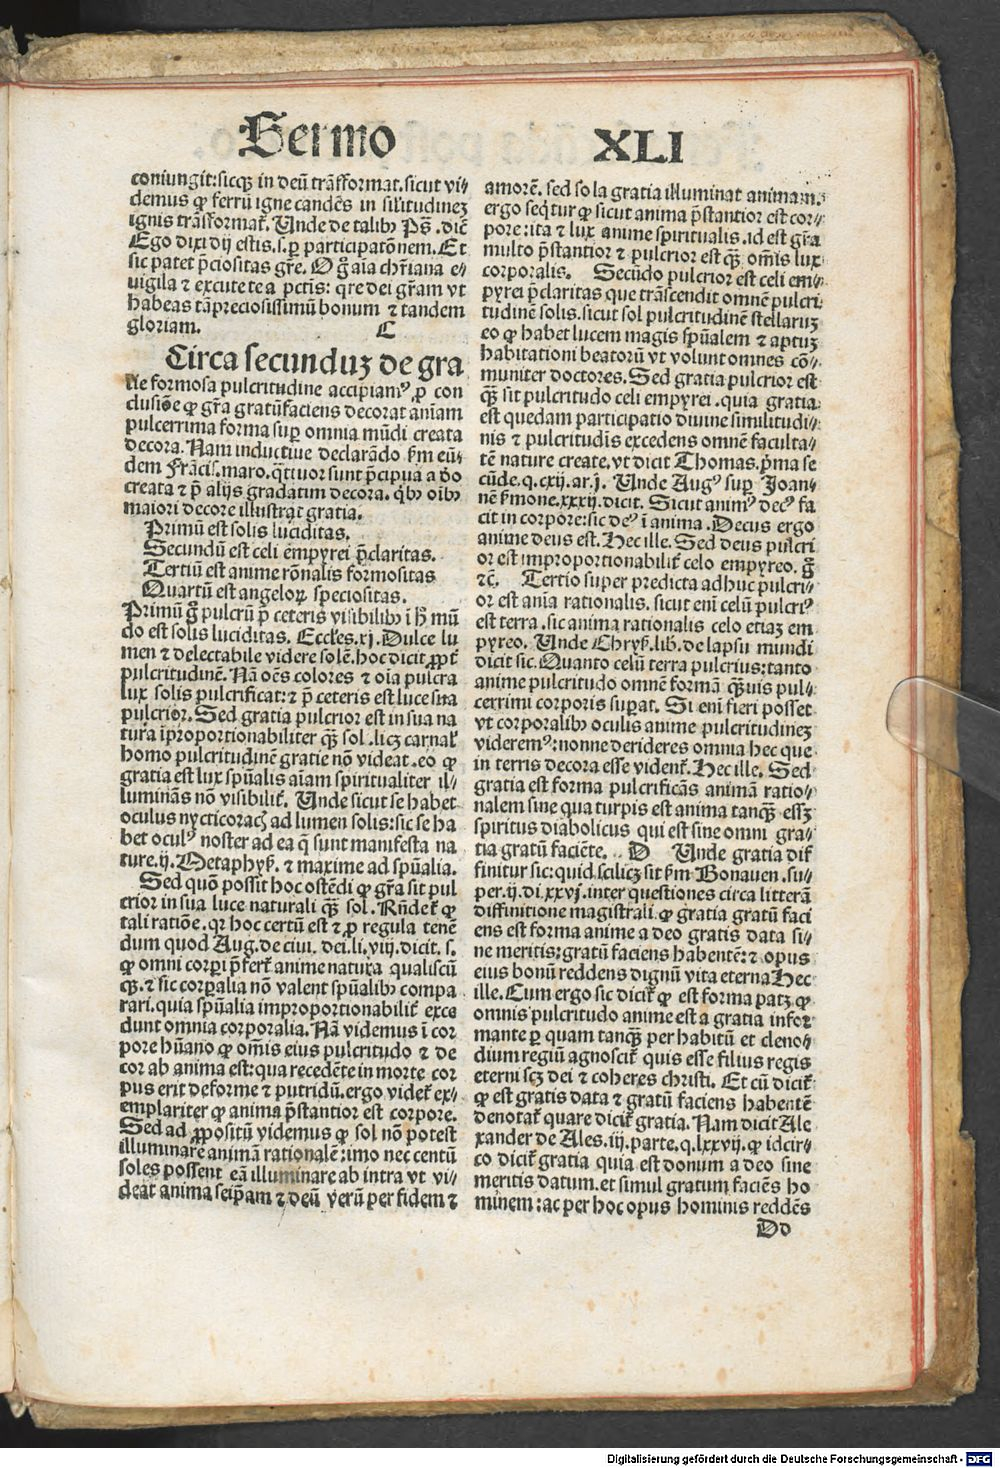 Sermo XLI
coniungit: sicqꝫ in deū trāsformat. sicut vi⸗
demus ꝙ ferrū igne candēs in sil'itudinez
ignis trāsformat̉. Unde de talibꝰ Ps̄. dic̄
Ego dixi dij estis. s. ꝑ participatōnem. Et
sic patet p̄ciositas gr̄e. O g̊ aīa chr̄iana e⸗
vigila ⁊ excute te a pctīs: qre dei gr̄am vt
habeas tā preciosissimū bonum ⁊ tandem
gloriam. C
Circa secunduꝫ de gra
tie formosa pulcritudine accipiamꝰ ꝓ con
clusiōe ꝙ gr̄a gratū faciens decorat aīam
pulcerrima forma suꝑ omnia mūdi creata
decora. Nam inductiue declarādo ẜm eū⸗
dem Frācis. maro. q̄ttuor sunt p̄cipua a deo
creata ⁊ p̄ alijs gradatim decora. qͥbꝰ oībꝰ
maiori decore illustrat gratia.
Primū est solis luciditas.
Secundū est celi empyrei p̄claritas.
Tertiū est anime rōnalis formositas
Quartū est angeloꝝ speciositas.
Primū g̊ pulcrū p̄ ceteris visibilibꝰ ī hͦ mū
do est solis luciditas. Eccl'es. xj. Dulce lu
men ⁊ delectabile videre solē. hoc dicit ꝓpt̉
pulcritudinē. Nā oēs colores ⁊ oīa pulcra
lux solis pulcrificat: ⁊ p̄ ceteris est luce sua
pulcrior. Sed gratia pulcrior est in sua na
tura īproportionabiliter qꝫ sol. licꝫ carnal'
homo pulcritudinē gratie nō videat. eo ꝙ
gratia est lux spūalis aīam spiritualiter il⸗
luminās nō visibilit̉. Unde sicut se habet
oculus nycticorac̄ ad lumen solis: sic se ha
bet oculꝰ noster ad ea q̄ sunt manifesta na
ture. ij. Metaphyẜ. ⁊ maxime ad spūalia.
Sed quō possit hoc ostēdi ꝙ gr̄a sit pul
crior in sua luce naturali qꝫ sol. Rn̄det̉ ꝙ
tali ratiōe. qꝛ hoc certū est ⁊ ꝓ regula tenē
dum quod Aug. de ciui. dei. li. viij. dicit. s.
ꝙ omni corꝑi p̄fert̉ anime natura qualiscū
qꝫ. ⁊ sic corꝑalia nō valent spūalibꝰ compa
rari. quia spūalia improportionabilit̉ exce
dunt omnia corporalia. Nā videmus ī cor
pore hūano ꝙ om̄is eius pulcritudo ⁊ de
cor ab anima est: qua recedēte in morte cor
pus erit deforme ⁊ putridū. ergo videt̉ ex⸗
emplariter ꝙ anima p̄stantior est corpore.
Sed ad ꝓpositū videmus ꝙ sol nō potest
illuminare animā rationalē: imo nec centū
soles possent eā illuminare ab intra vt vi⸗
deat anima seip̄am ⁊ deū verū per fidem ⁊
amorē. sed sola gratia illuminat animam.
ergo seq̄tur ꝙ sicut anima p̄stantior est cor⸗
pore: ita ⁊ lux anime spiritualis. id est gr̄a
multo p̄stantior ⁊ pulcrior est qꝫ om̄is lux
corporalis. Secūdo pulcrior est celi em⸗
pyrei p̄claritas que trāscendit omnē pulcri
tudinē solis. sicut sol pulcritudinē stellaruꝫ
eo ꝙ habet lucem magis spūalem ⁊ aptuꝫ
habitationi beatorū vt volunt omnes cō⸗
muniter doctores. Sed gratia pulcrior est
qꝫ sit pulcritudo celi empyrei. quia gratia
est quedam participatio diuine similitudi⸗
nis ⁊ pulcritudīs excedens omnē faculta⸗
tē nature create. vt dicit Thomas. pͥma se
cūde. q. cxij. ar. j. Unde Augꝰ suꝑ Joan⸗
nē ẜmone. xxxij. dicit. Sicut animꝰ decꝰ fa
cit in corpore: sic deꝰ ī anima. Decus ergo
anime deus est. Hec ille. Sed deus pulcri
or est improportionabilit̉ celo empyreo. g̊
⁊c̄. Tertio super predicta adhuc pulcri⸗
or est anīa rationalis. sicut enī celū pulcriꝰ
est terra. sic anima rationalis celo etiaꝫ em
pyreo. Unde Chryẜ. lib. de lapsu mundi
dicit sic. Quanto celū terra pulcrius: tanto
anime pulcritudo omnē formā qꝫuis pul⸗
cerrimi corporis suꝑat. Si enī fieri posset
vt corporalibꝰ oculis anime pulcritudinez
videremꝰ: nonne derideres omnia hec que
in terris decora esse vident̉. Hec ille. Sed
gratia est forma pulcrificās animā ratio⸗
nalem sine qua turpis est anima tanqꝫ esset
spiritus diabolicus qui est sine omni gra⸗
tia gratū faciēte. D Unde gratia dif
finitur sic: quid scilicꝫ sit ẜm Bonauen. su⸗
per. ij. di. xxvj. inter questiones circa litterā
diffinitione magistrali. ꝙ gratia gratū faci
ens est forma anime a deo gratis data si⸗
ne meritis: gratū faciens habentē: ⁊ opus
eius bonū reddens dignū vita eterna Hec
ille. Cum ergo sic dicit̉ ꝙ est forma patꝫ ꝙ
omnis pulcritudo anime est a gratia infor
mante ꝑ quam tanqꝫ per habitū et cleno⸗
dium regiū agnoscit̉ quis esse filius regis
eterni scꝫ dei ⁊ coheres christi. Et cū dicit̉
ꝙ est gratis data ⁊ gratū faciens habentē
denotat̉ quare dicit̉ gratia. Nam dicit Ale
xander de Ales. iij. parte. q. lxxvij. ꝙ idcir⸗
co dicit̉ gratia quia est donum a deo sine
meritis datum. et simul gratum faciēs ho
minem: ac per hoc opus hominis reddēs
Dd
Digitalisierung gefördert durch die Deutsche Forschungsgemeinschaft - DFG